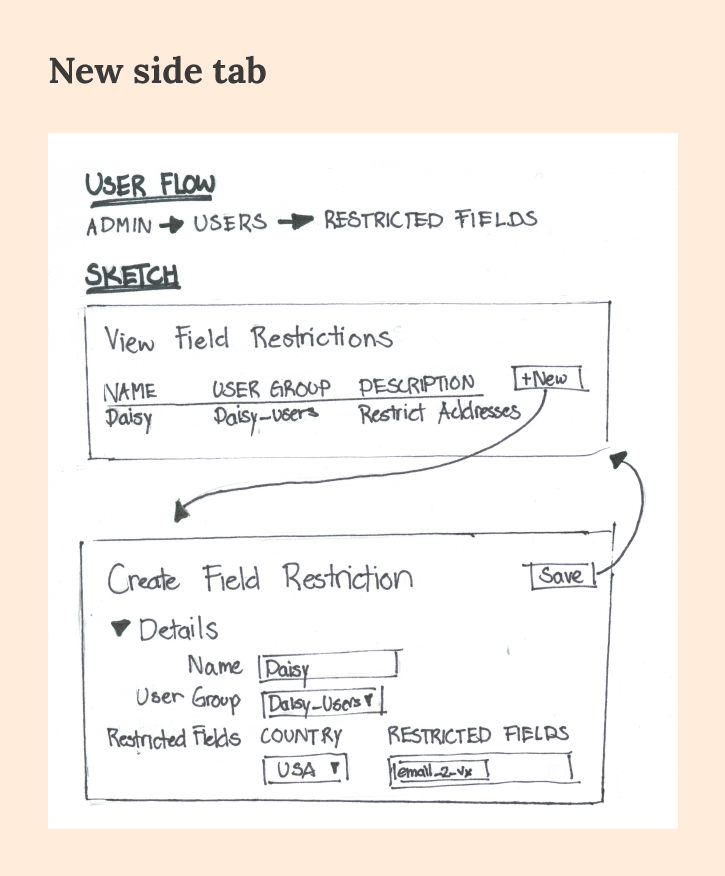 New side tab
USER FLOW
ADMIN → USERS → RESTRICTED FIELDS
SKETCH
View Field Restrictions
NAME USER GROUP DESCRIPTION +New
Daisy Daisy-users Restrict Addresses
Create Field Restriction Save
▼ Details
Name Daisy
User Group Daisy_Users ▼
Restricted Fields COUNTRY RESTRICTED FIELDS
USA ▼ email_2_vx